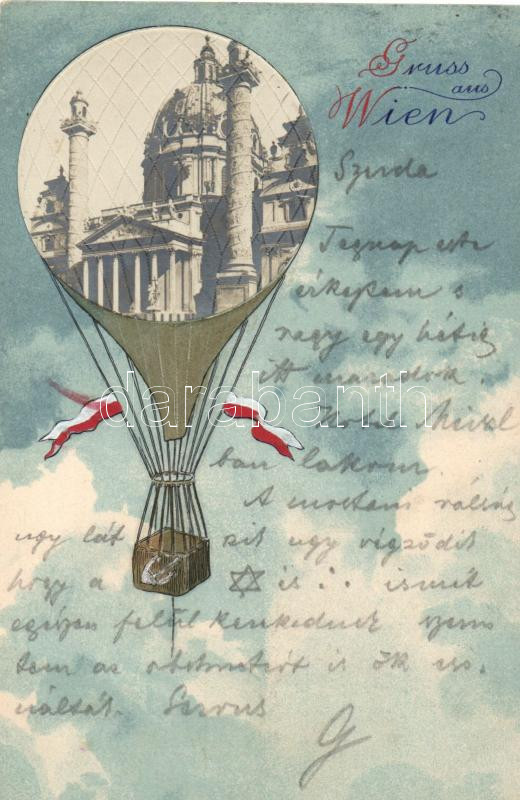 Gruss
aus
Wien
Szerda
Tegnap este
érkeztem s
vagy egy hétig
itt maradok.
Hotel
ban lakom.
A mostani válság
úgy lát szik úgy végződik
hogy a ✡ is : . ismét
egészen felül kerekednek szerin
tem az is ők
Servus
G
darabanth